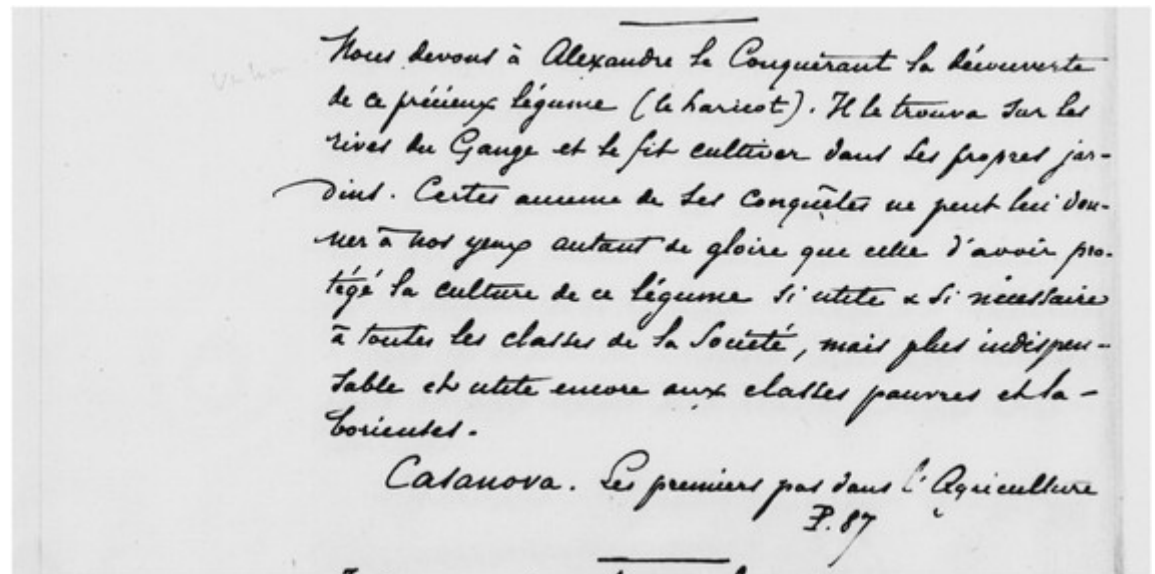 Nous devons à Alexandre le Conquérant la découverte
de ce précieux légume (le haricot). Il le trouva sur les
rives du Gange et le fit cultiver dans ses propres jar-
dins. Certes aucune de ses conquêtes ne peut lui don-
ner à nos yeux autant de gloire que celle d'avoir pro-
tégé la culture de ce légume si utile & si nécessaire
à toutes les classes de la Société, mais plus indispen-
sable et utile encore aux classes pauvres et la-
borieuses.
Casanova. Les premiers pas dans l'Agriculture
P. 87